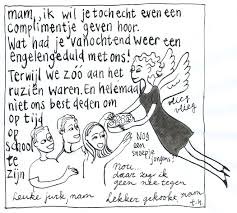 mam, ik wil je toch echt even een
complimentje geven hoor.
Wat had je vanochtend weer een
engelengeduld met ons!
Terwijl we zóó aan het
ruziën waren. En helemaal
niet ons best deden om
op tijd
op
school
te
zijn
diet vlieg
Nog
een
snoepje
jongens?
Nou...
daar zeg ik
geen nee tegen
Leuke jurk, mam
Lekker gekookt, mam